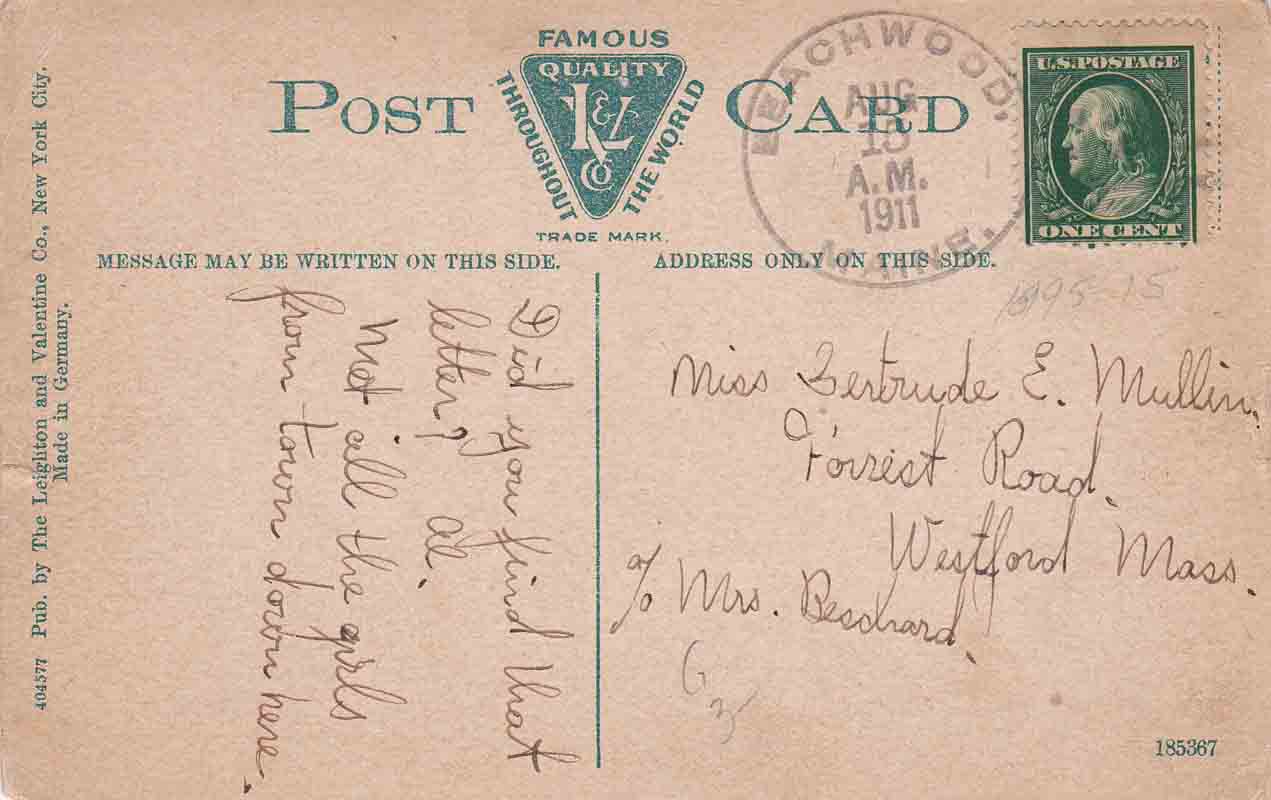 FAMOUS
QUALITY
THROUGHOUT
THE WORLD
L&V
Co
TRADE MARK.
POST CARD
BEACHWOOD,
AUG
A.M.
1911
MAINE.
U.S. POSTAGE
ONE CENT
MESSAGE MAY BE WRITTEN ON THIS SIDE.
ADDRESS ONLY ON THIS SIDE.
404577 Pub. by The Leighton and Valentine Co., New York City.
Made in Germany.
Did you find that
letter? Al.
Met all the girls
from town down here.
Miss Gertrude E. Mullin,
Forrest Road,
Westford Mass.
c/o Mrs. Beschard,
185367